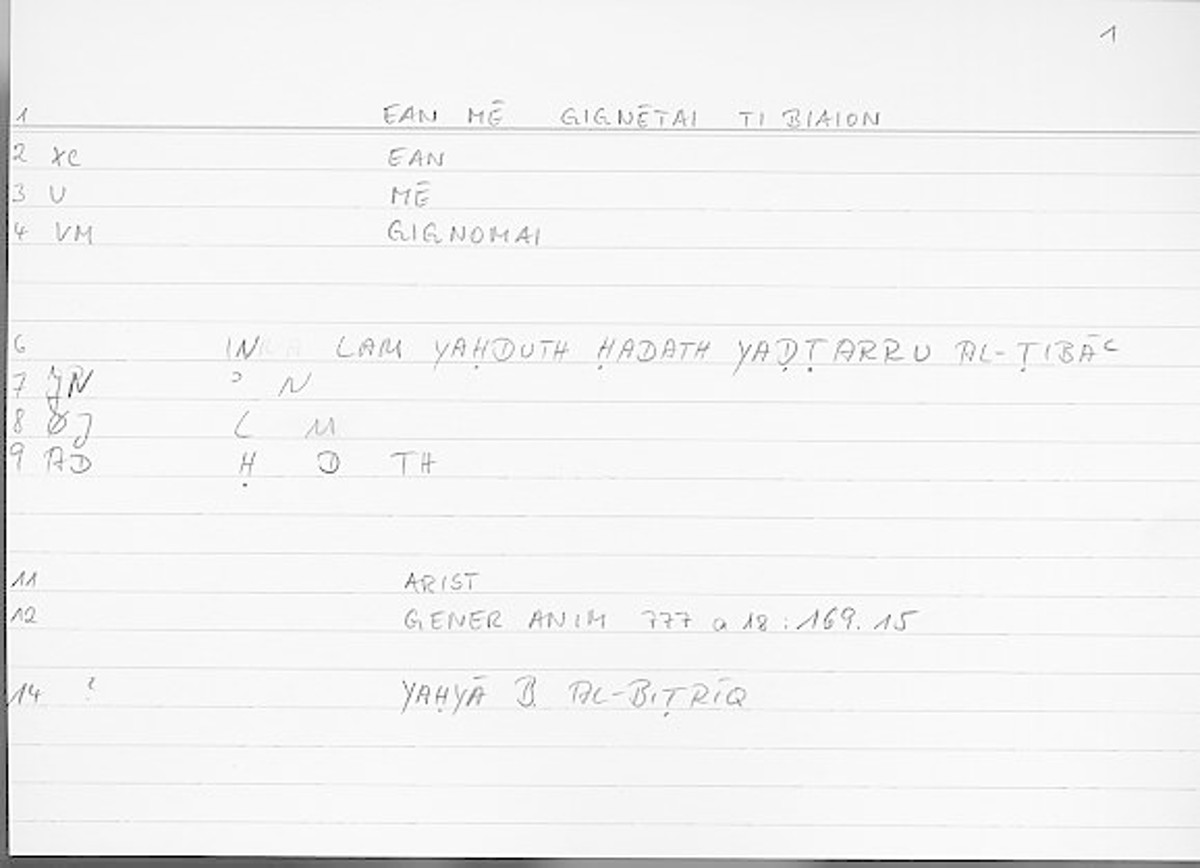 1
1 EAN MĒ GIGNĒTAI TI BIAION
2 XC EAN
3 U MĒ
4 VM GIGNOMAI
6 IN LAM YAḤDUTH ḤADATH YAḌṬARRU AL-ṬIBĀʿ
7 JN ʾ N
8 ØJ L M
9 AD Ḥ D TH
11 ARIST
12 GENER ANIM 777 a 18 : 169.15
14 ? YAḤYĀ B. AL-BIṬRĪQ